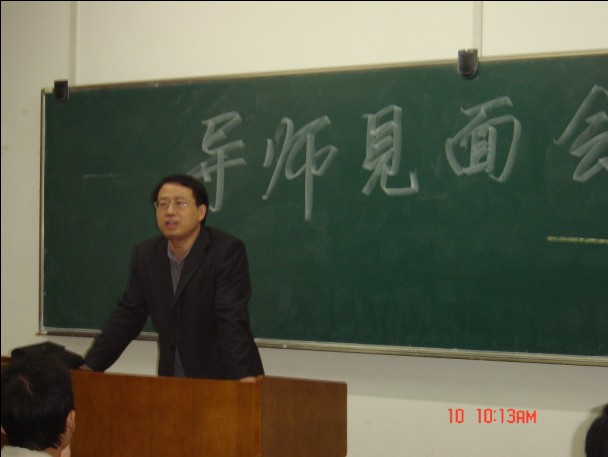 导师見面会
10 10:13AM